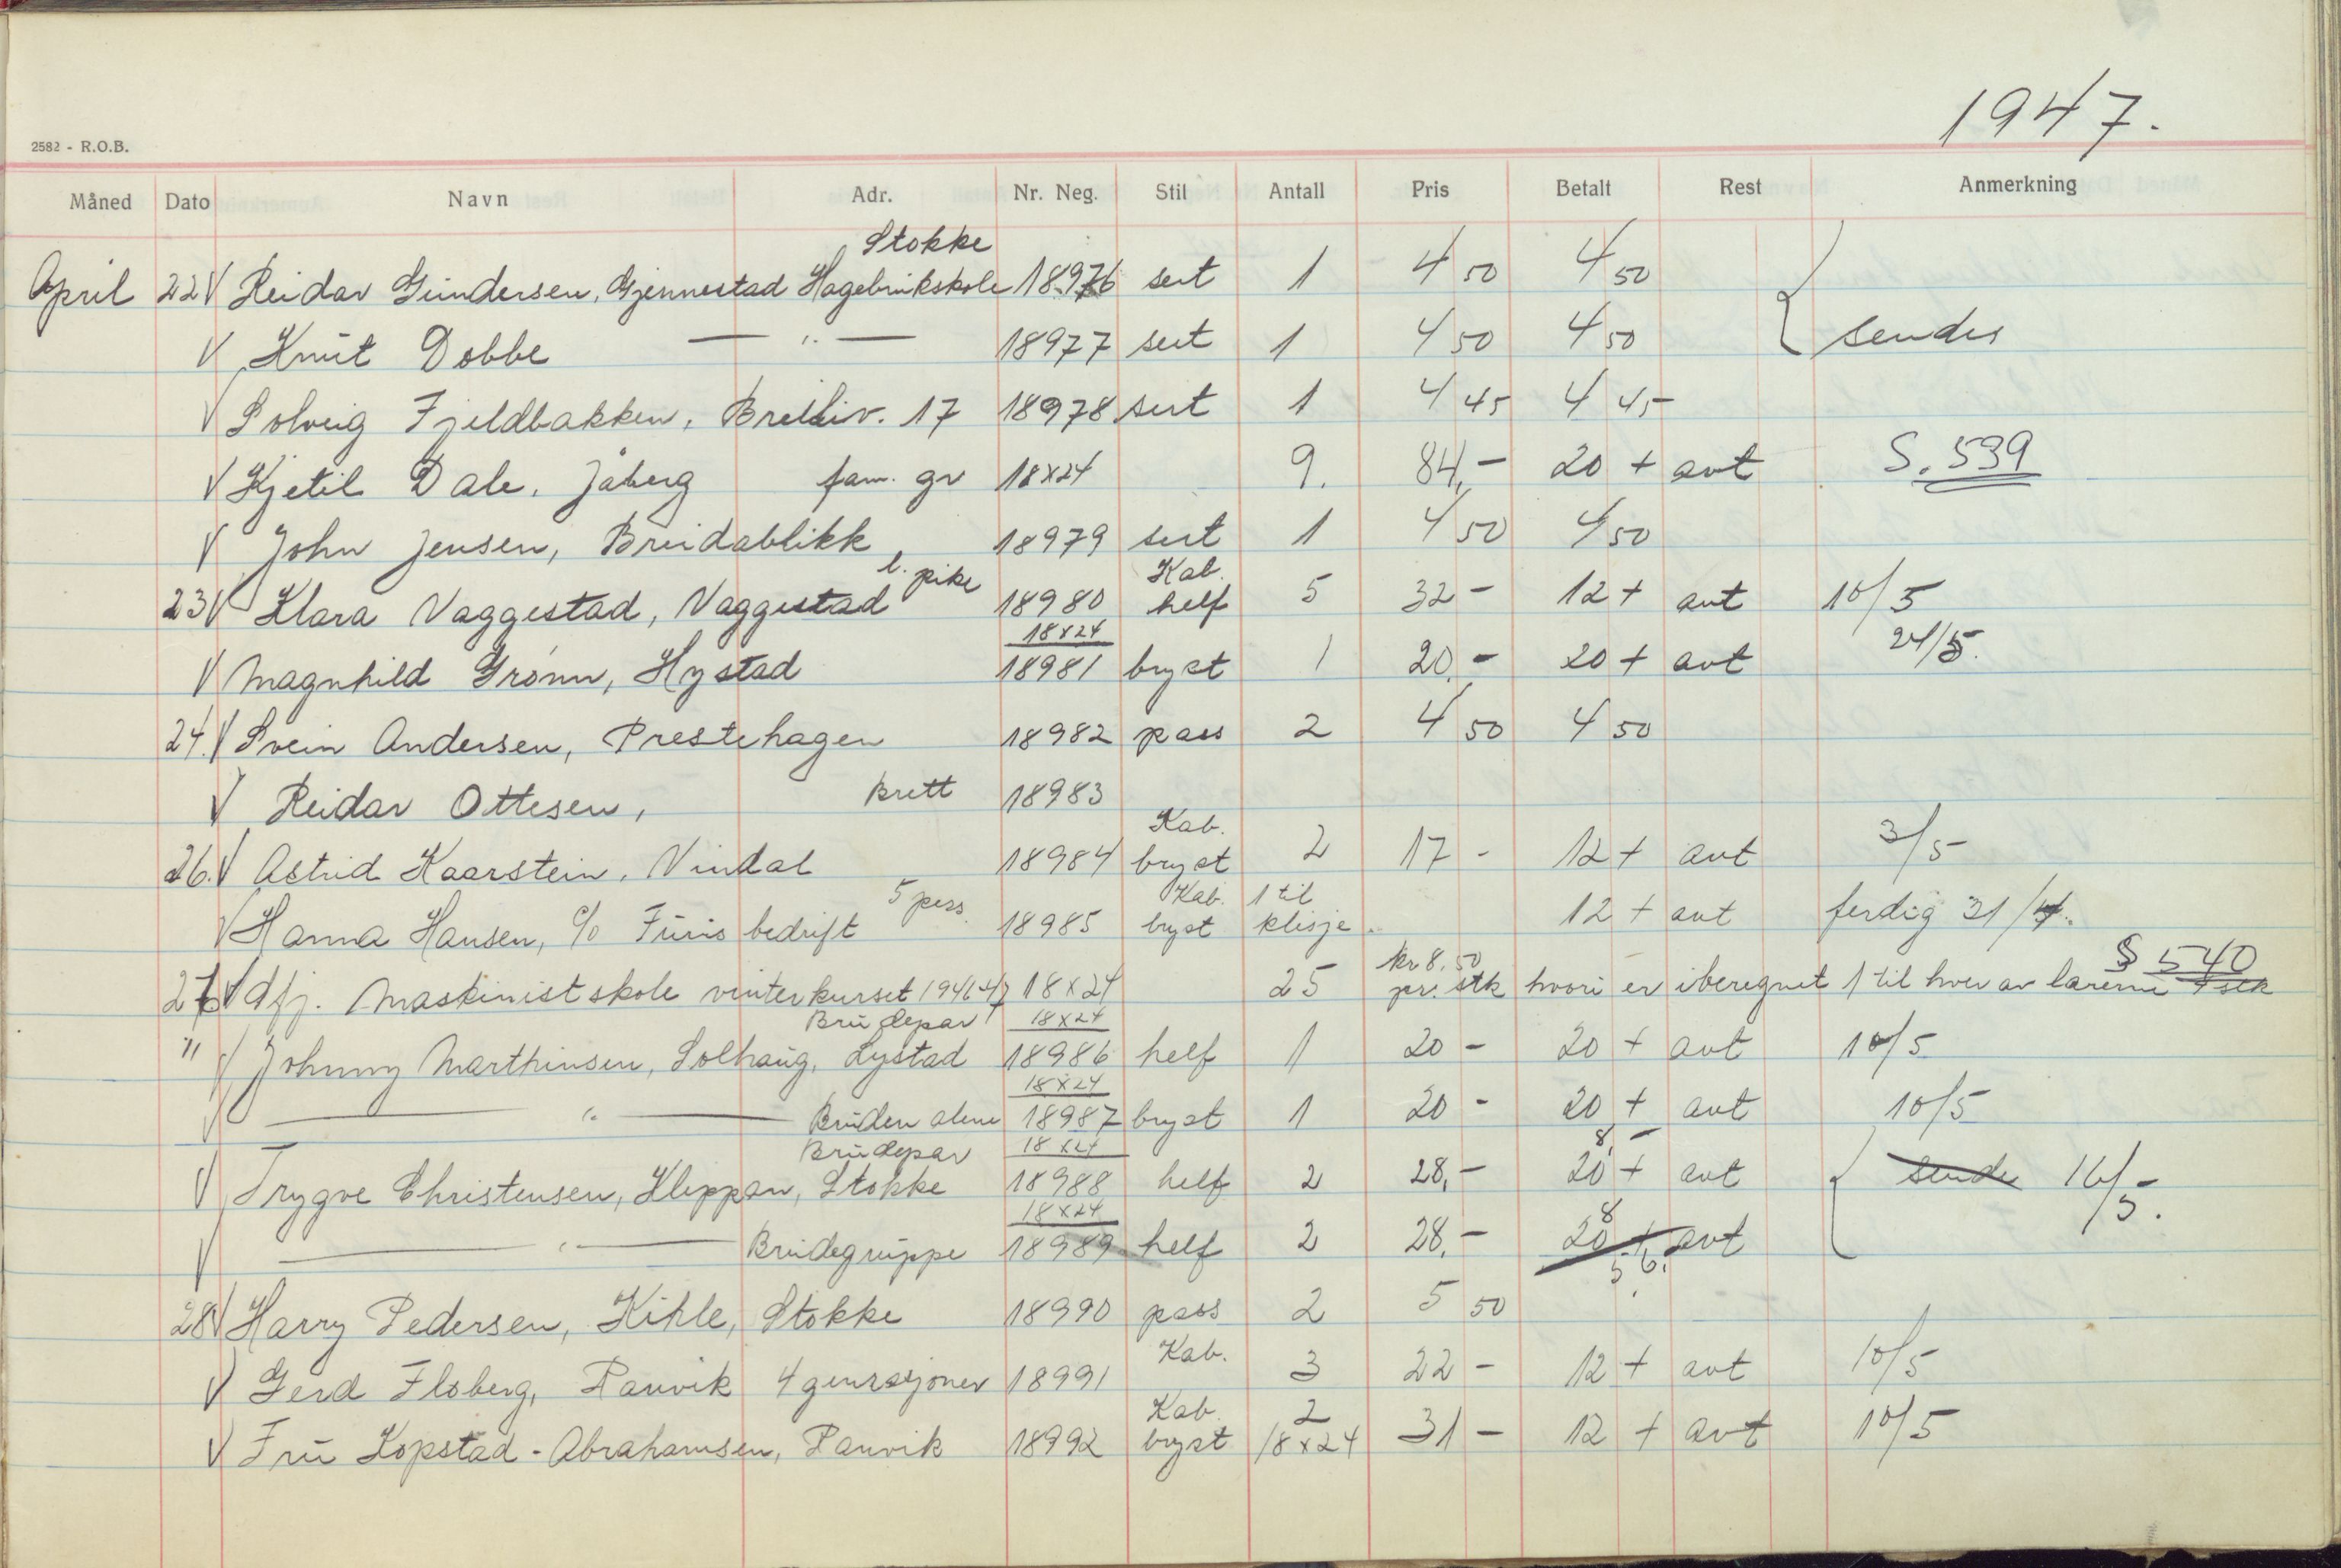 1947.
2582 - R.O.B.
Måned Dato Navn Adr. Nr. Neg. Stil Antall Pris Betalt Rest Anmerkning
Stokke
April 22 V Reidar Gundersen, Gjennestad Hagebrukskole 18976 sert 1 4 50 4 50
V Knut Dobbe — " — 18977 sert 1 4 50 4 50 sendes
V Solveig Fjeldbakken, 17 18978 sert 1 4 45 4 45
V Kjetil Dale, Jåberg fam. gr 18x24 9. 84,- 20 + avt S. 539
V John Jensen, Breidablikk 18979 sert 1 4 50 4 50
l. pike Kab.
23 V Klara Vaggestad, Vaggestad 18980 helf 5 32 - 12 + avt 10/5
18x24
V Magnhild Grønn, Hystad 18981 bryst 1 20.- 20 + avt 24/5.
24. V Svein Andersen, Prestehagen 18982 pass 2 4 50 4 50
V Reidar Ottesen, Brett 18983
Kab.
26. V Astrid Kaarstein, Vindal 18984 bryst 2 17 - 12 + avt 3/5
5 pers. Kab. 1 til
V Hanna Hansen, c/o Furis bedrift 18985 bryst klisje. 12 + avt ferdig 31/4.
kr 8.50 S 540
27 V Sfj. Maskinistskole vinterkurset 1946-47 18x24 25 pr. stk hvori er iberegnet 1 til hver av lærerne 4 stk
Brudepar 18x24
" V Johnny Marthinsen, Solhaug, Lystad 18986 helf 1 20 - 20 + avt 10/5
18x24
V — " — Bruden alene 18987 bryst 1 20 - 20 + avt 10/5
Brudepar 18x24 8,-
V Trygve Christensen, Kleppan, Stokke 18988 helf 2 28,- 20 + avt sendes 16/5.
18x24 8
V — " — Brudegruppe 18989 helf 2 28,- 20 + avt
56.
28 V Harry Pedersen, Kihle, Stokke 18990 pass 2 5 50
Kab.
V Gerd Floberg, Ranvik 4 genrasjoner 18991 3 22 - 12 + avt 10/5
Kab. 2
V Fru Kopstad - Abrahamsen, Ranvik 18992 bryst 18x24 31 - 12 + avt 10/5